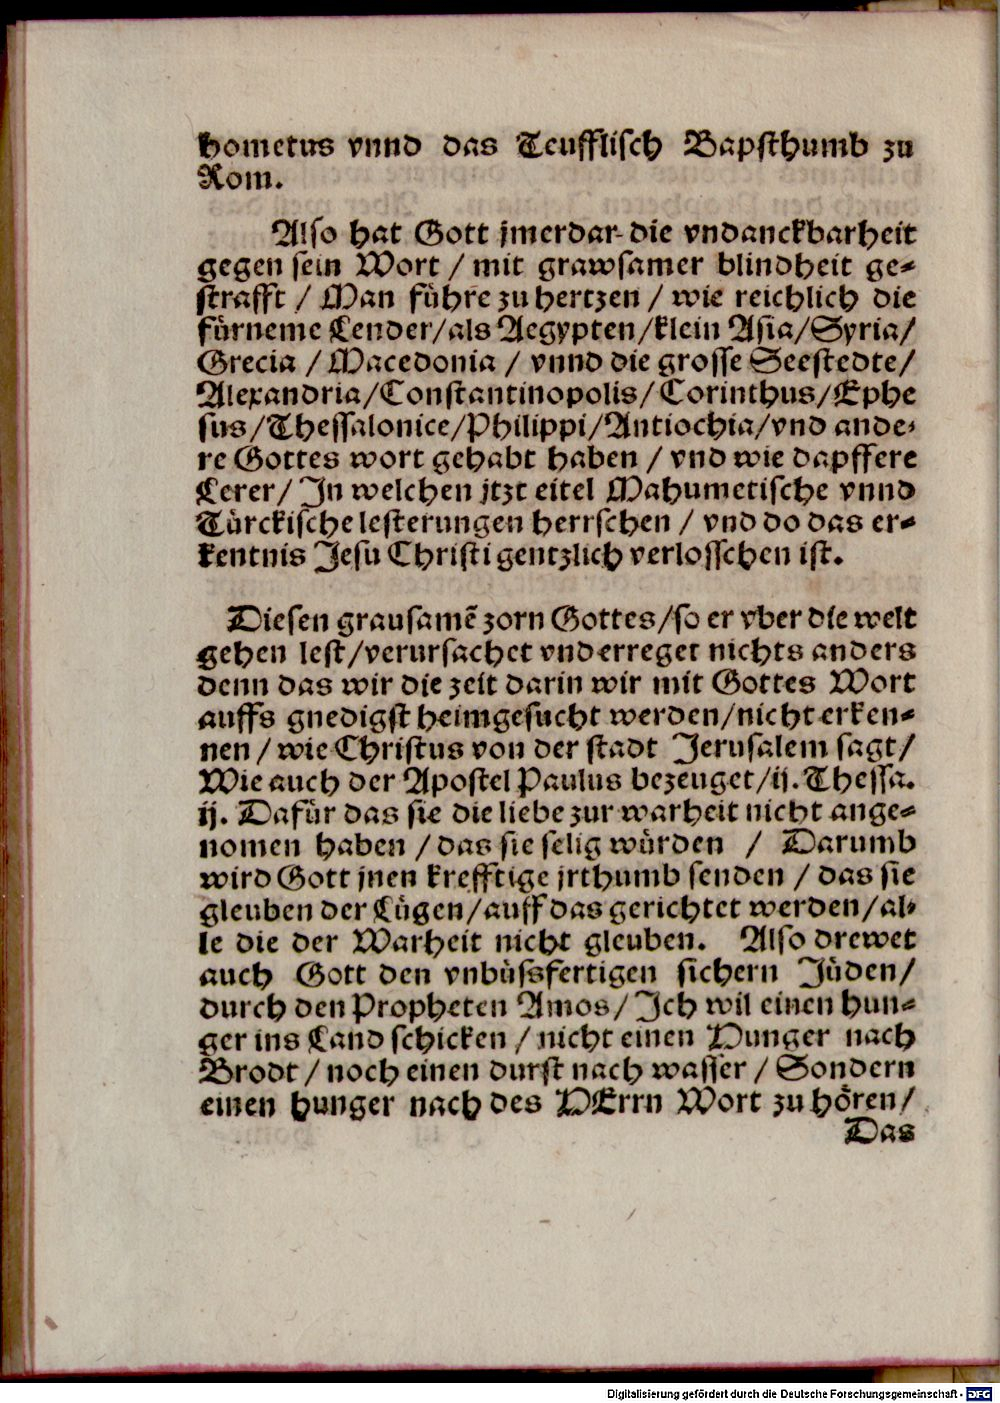 hometus vnnd das Teufflisch Bapsthumb zu
Rom.
Also hat Gott jmerdar die vndanckbarheit
gegen sein Wort / mit grawsamer blindheit ge-
strafft / Man führe zu hertzen / wie reichlich die
fürneme Lender/als Aegypten/klein Asia/Syria/
Grecia / Macedonia / vnnd die grosse Seestedte/
Alexandria/Constantinopolis/Corinthus/Ephe
sus/Thessalonice/Philippi/Antiochia/vnd ande-
re Gottes wort gehabt haben / vnd wie dapffere
Lerer/ In welchen jtzt eitel Mahumetische vnnd
Türckische lesterungen herrschen / vnd do das er-
kentnis Jesu Christi gentzlich verlosschen ist.
Diesen grausamē zorn Gottes/so er vber die welt
gehen lest/verursachet vnd erreget nichts anders
denn das wir die zeit darin wir mit Gottes Wort
auffs gnedigst heimgesucht werden/nicht erken-
nen / wie Christus von der stadt Jerusalem sagt/
Wie auch der Apostel Paulus bezeuget/ij. Thessa.
ij. Dafür das sie die liebe zur warheit nicht ange-
nomen haben / das sie selig würden / Darumb
wird Gott jnen krefftige jrthumb senden / das sie
gleuben der Lügen/auff das gerichtet werden/al-
le die der Warheit nicht gleuben. Also drewet
auch Gott den vnbüssfertigen sichern Jüden/
durch den Propheten Amos/ Ich wil einen hun-
ger ins Land schicken / nicht einen Hunger nach
Brodt / noch einen durst nach wasser / Sondern
einen hunger nach des HErrn Wort zu hören/
Das
Digitalisierung gefördert durch die Deutsche Forschungsgemeinschaft - DFG